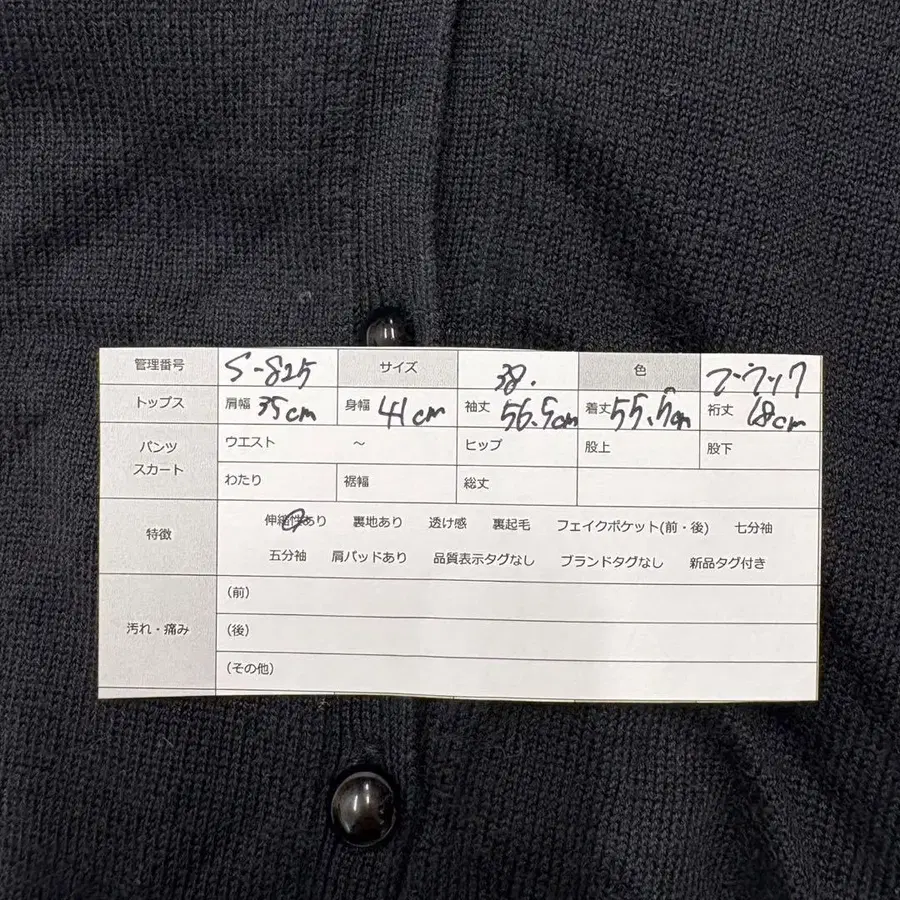 管理番号 S-825 サイズ 38. 色 ブラック
トップス 肩幅 35cm 身幅 41cm 袖丈 56.5cm 着丈 55.5cm 裄丈 68cm
パンツ スカート ウエスト ～ ヒップ 股上 股下
わたり 裾幅 総丈
特徴 伸縮性あり 裏地あり 透け感 裏起毛 フェイクポケット(前・後) 七分袖
五分袖 肩パッドあり 品質表示タグなし ブランドタグなし 新品タグ付き
汚れ・痛み (前)
(後)
(その他)